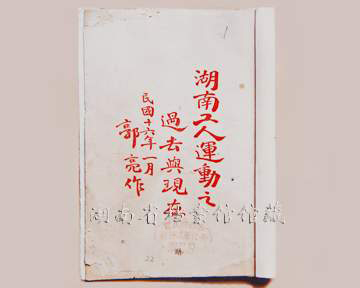 湖南工人運動之
過去與現在
民國十六年一月
郭亮作
湖南省档案馆馆藏